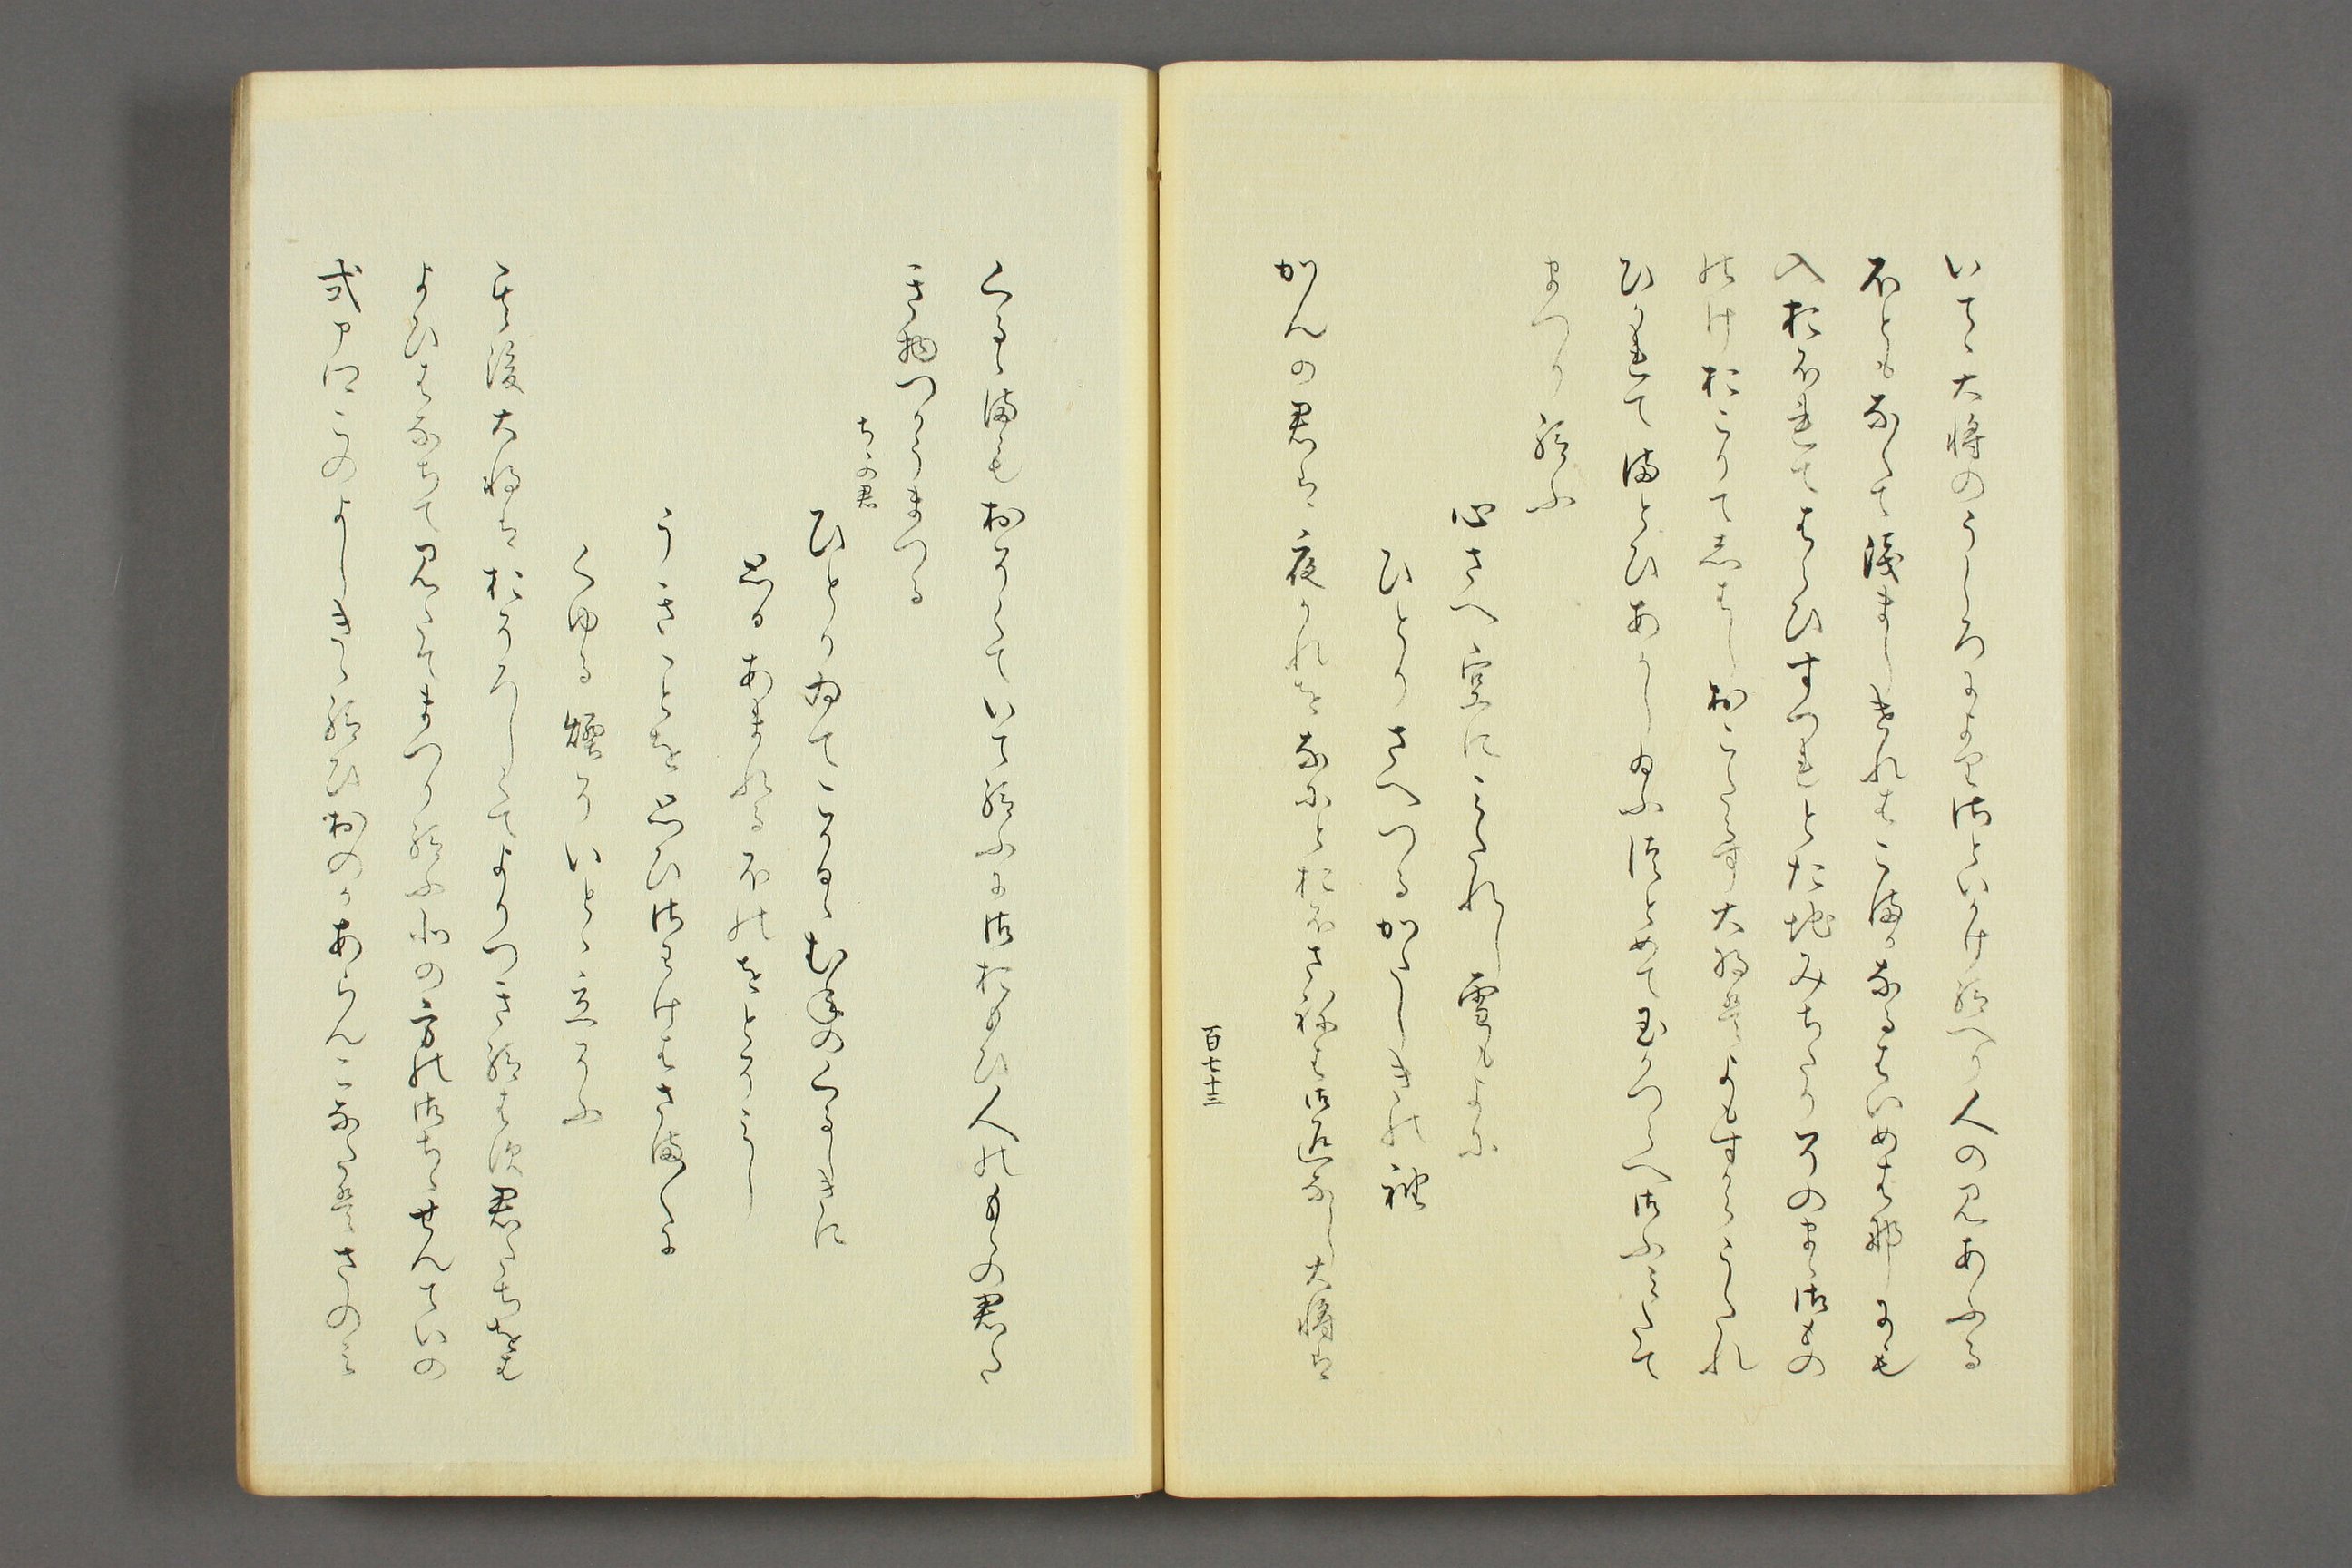 いてゝ大将のうしろによりてはといかけ給へり人の見あふる
ほともなくて浅ましけれはこまかなるはいめはなにも
入おほれてはらひすつれとた地みちたりそのまゝ御もの
のけおこりてしはしおこたらす大将よもすからうたれ
ひかれてまとひあかし給ふつとめて玉かつらへ御ふみたて
まつり給ふ
心さへ空にみたれし雪もよに
ひとりさへつるかたしきの袖
かんの君は夜かれをなにとおほさねは御返なし大将は
百七十三
くるゝまもおそくていて給ふに御おもひ人のもくの君た
き物つかうまつる
もくの君
ひとりゐてこかるゝむねのくるしきに
思ひあまれるほのをとそみし
うきことを思ひさはけはさま〳〵に
くゆる煙そいとゝ立そふ
其後大将はおそろしくてよりつき給はす姫君たちをも
よひはなちて見たてまつり給ふ北の方の御ちゝせんていの
式ア卿このよしきゝ給ひおのかあらんこなたはさのみ